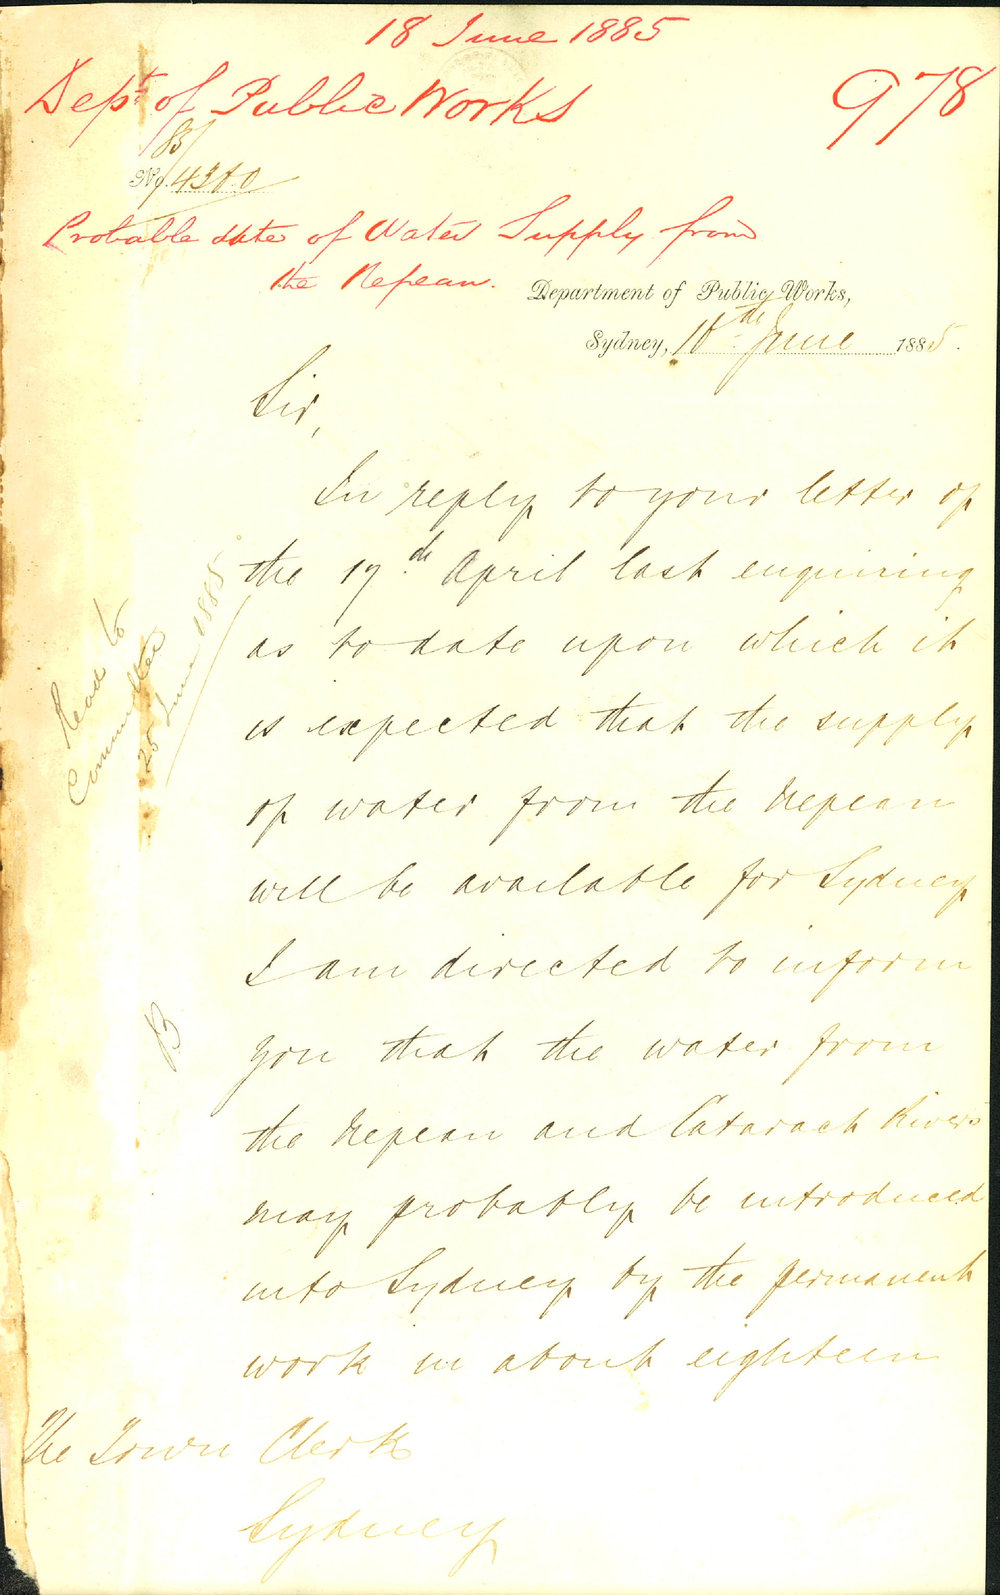 18 June 1885
Dept of Public Works
978
85/
No. 4380
Probable date of Water Supply from
the Nepean.
Department of Public Works,
Sydney, 18th June 1885.
Sir,
In reply to your letter of
the 17th April last enquiring
as to date upon which it
is expected that the supply
of water from the Nepean
will be available for Sydney
I am directed to inform
you that the water from
the Nepean and Cataract Rivers
may probably be introduced
into Sydney by the permanent
work in about eighteen
The Town Clerk
Sydney
Read to
Committee
25 June 1885
B